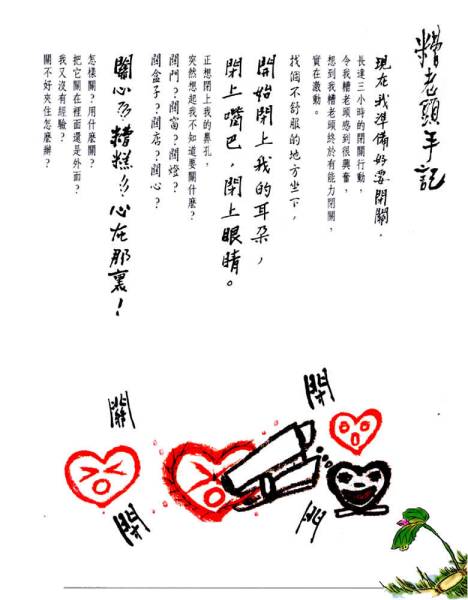 糟老頭手記
現在我準備好要閉關，
長達三小時的閉關行動，
令我糟老頭感到很興奮，
想到我糟老頭終於有能力閉關，
實在激動。
找個不舒服的地方坐下，
開始閉上我的耳朵，
閉上嘴巴，閉上眼睛。
正想閉上我的鼻孔，
突然想起我不知道要關什麼？
關門？關窗？關燈？
關盒子？關店？關心？
關心??糟糕!!心在那裏！
怎樣關？用什麼關？
把它關在裡面還是外面？
我又沒有經驗？
關不好夾住怎麼辦？
關
開
開